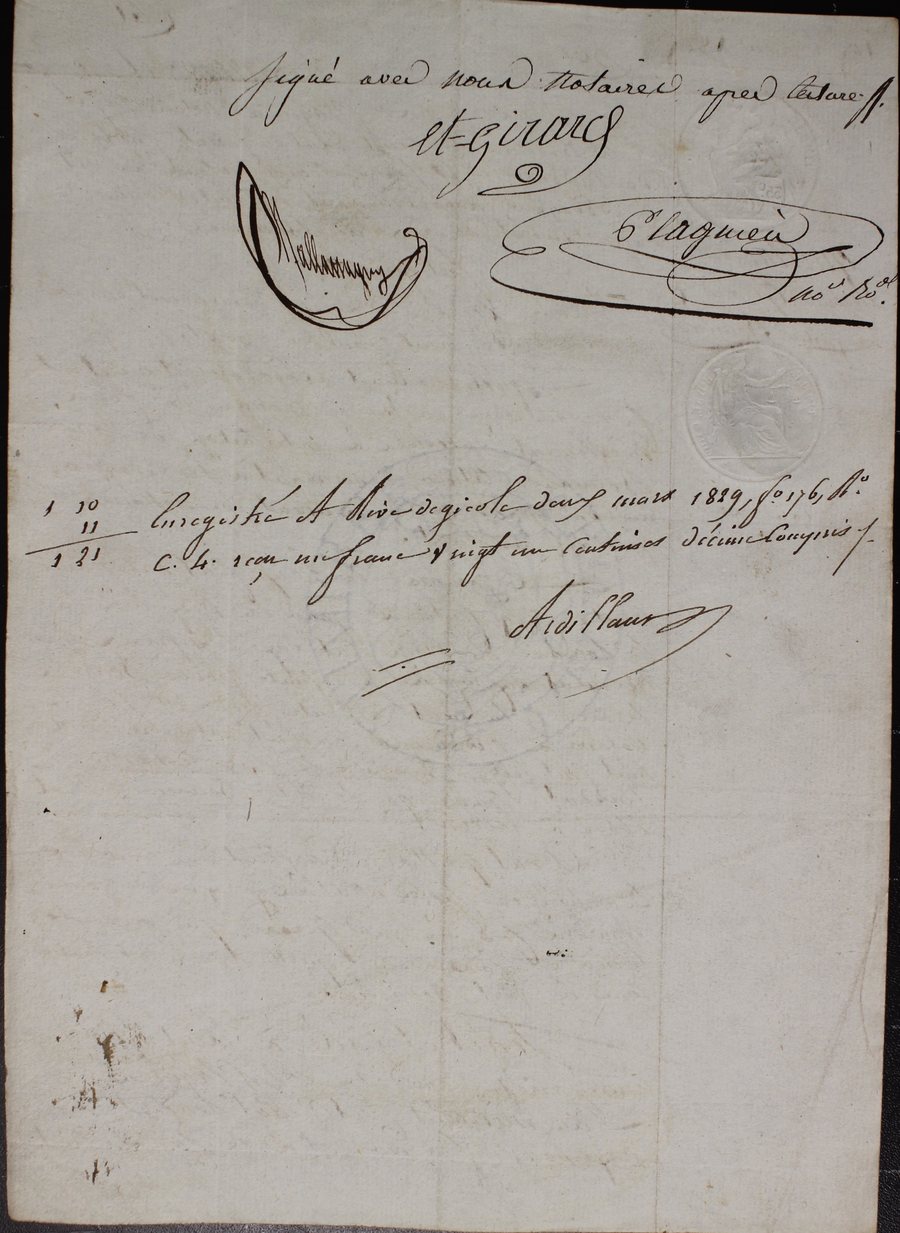 signé avec nous notaires apres lecture ./.
et=Girard
Plagnieu
no.re Ro.al
1 10
11
1 21
Enregistré A Rive de gie le deux mars 1829, fo. 176, Ro.
C. 4. reçu un franc vingt un centimes décime compris /-
Ardillaux